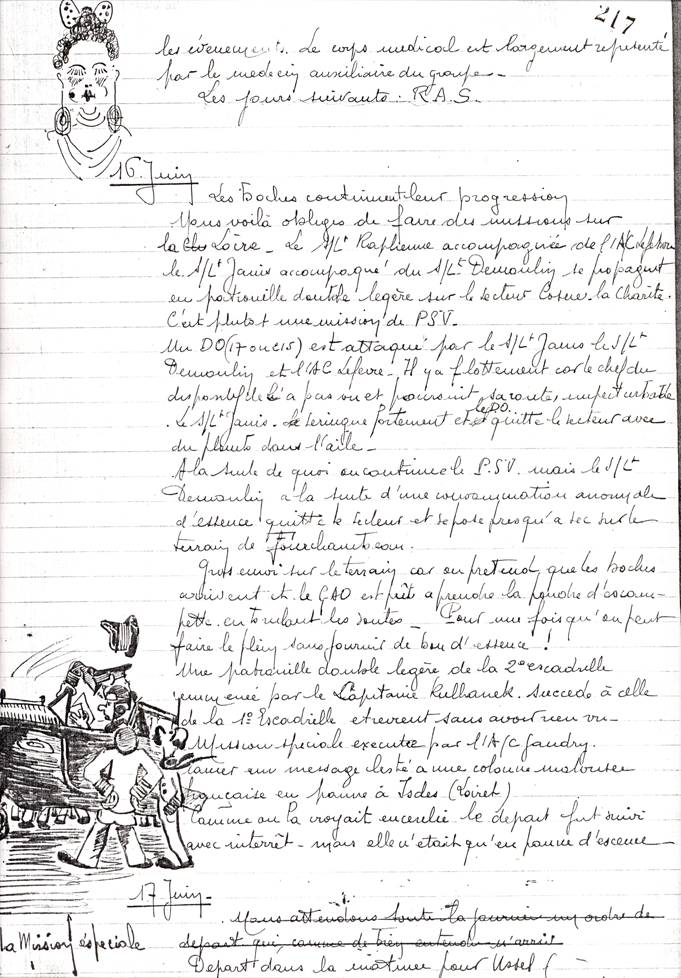 217
les évenements. Le corps medical est largement representé
par le medecin auxiliaire du groupe -
Les jours suivants : R.A.S.
16 Juin
Les Boches continuent leur progression
Nous voilà obligés de faire des missions sur
la Loire - Le S/Lt Raphenne accompagnée de l'A/C Lefebvre
le S/Lt Janis accompagné du S/Lt Demoulin se propagent
en patrouille double legère sur le secteur Cosne. la Charité.
C'est plutot une mission de PSV.
Un DO (17 ou 215) est attaqué par le S/Lt Janis le S/Lt
Demoulin et l'AC Lefevre - Il y a flottement car le chef du
dispositif ne l'a pas vu et poursuit sa route, imperturbable
. Le S/Lt Janis. Le seringue fortement et le DO. quitte le secteur avec
du plomb dans l'aile -
A la suite de quoi on continue le P.SV. mais le S/Lt
Demoulin a la suite d'une consommation anormale
d'essence quitte le secteur et se pose presqu'a sec sur le
terrain de Fourchambeau.
Gros emoi sur le terrain car on pretend que les boches
arrivent et le GAO est prêt a prendre la poudre d'escam-
pette en les soutes - Pour une fois qu'on peut
faire le plein sans fournir de bon d'essence !
Une patrouille double legère de la 2e escadrille
emmenée par le Capitaine Kulhanek. succede à celle
de la 1e Escadrille et revient sans avoir rien vu -
Mission speciale executée par l'A/C Gaudry.
lancer un message lesté a une colonne motorisée
française en panne à Isdes (Loiret)
Comme on la croyait encerclée le depart fut suivi
avec interrêt - mais elle n'était qu'en panne d'essence -
17 Juin -
Nous attendons toute la journée un ordre de
depart qui, comme de bien entendu n'arrive
Depart dans la matinée pour Ussel (-
La Mission speciale